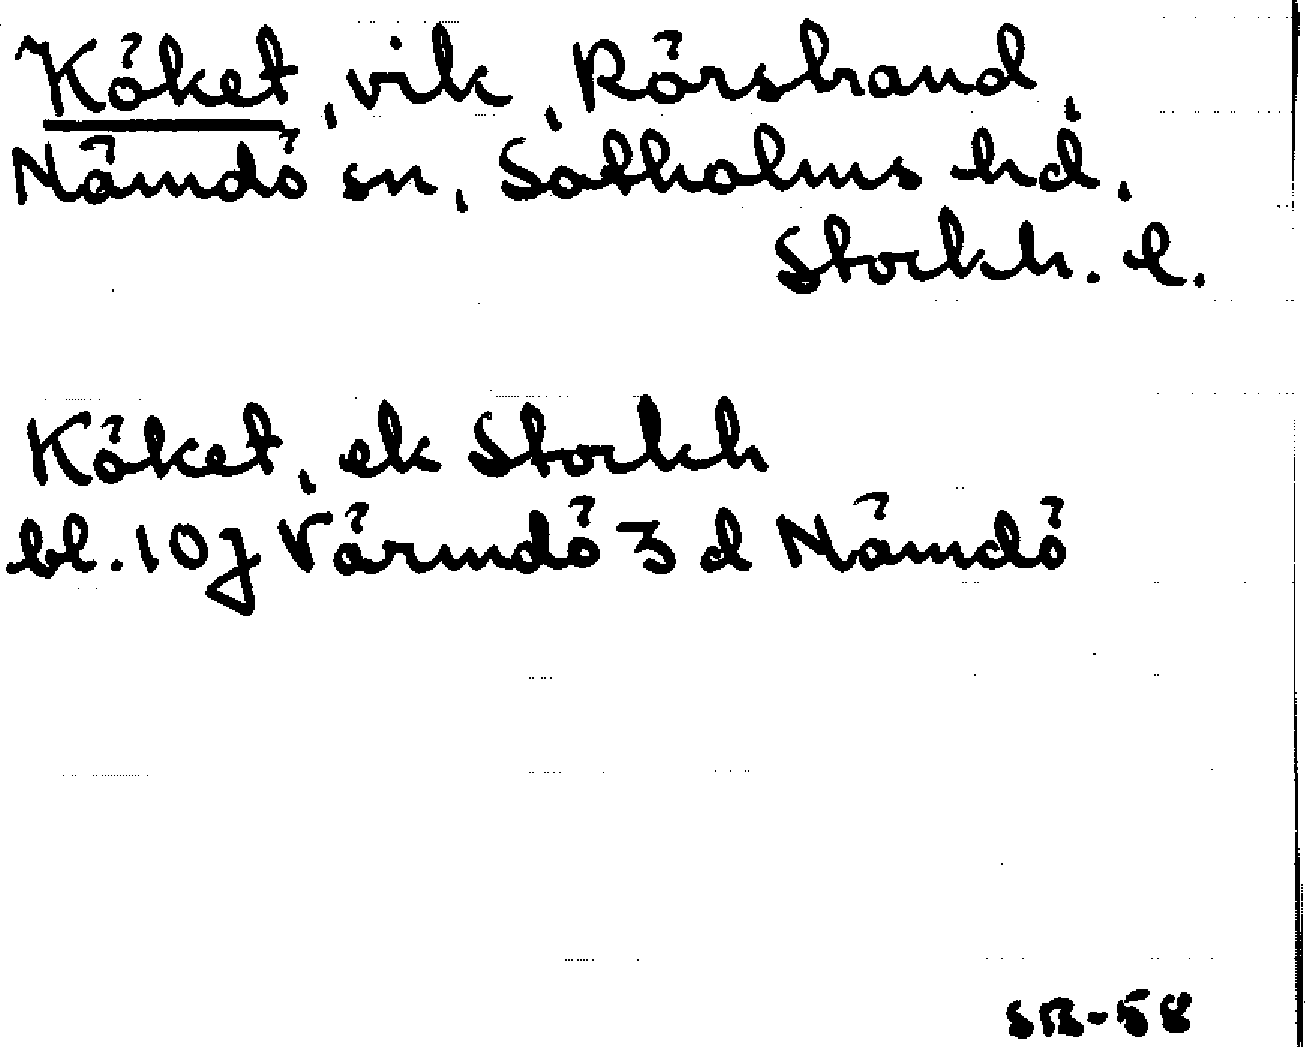 Köket, vik, Rörstrand,
Nämdö sn, Sotholms hd.
Stockh. l.
Köket, ek Stockh
bl. 10j Värmdö 3 d Nämdö
SR-58